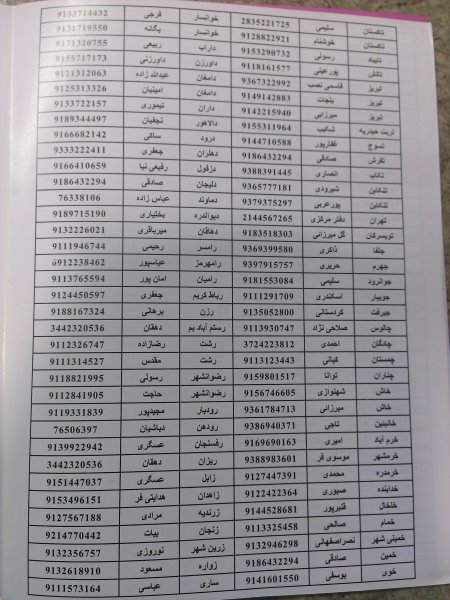 تاکستان سلیمی 2835221725 خوانسار فرجی 9133714432
تاکستان خوشنام 9128822921 خوانسار یگانه 9131719550
تایباد رسولی 9153290732 داراب ربیعی 9171320755
تالش پورعینی 9118161577 داورزن داورزنی 9155717173
تبریز قاسمی نصب 9367322992 دامغان عبدالله زاده 9121312063
تبریز بلجات 9149142883 دامغان امینیان 9125313326
تبریز میرزایی 9142215940 داران تیموری 9133722157
تربت حیدریه شکیب 9155311964 دالاهور نجفیان 9189344497
تسوج غفارپور 9144710588 درود ساکی 9166682142
تفرش صادقی 9186432294 دهلران جعفری 9333222411
تکاب انصاری 9388391445 دزفول رفیعی نیا 9166410659
تنکابن شیرودی 9365777181 دلیجان صادقی 9186432294
تنکابن پورعربی 9379375297 دماوند عباس زاده 76338106
تهران دفتر مرکزی 2144567265 دیواندره بختیاری 9189715190
تویسرکان گل میرزائی 9183518303 دهاقان میرباقری 9132226021
جلفا ذاکری 9369399580 رامسر رحیمی 9111946744
جهرم حریری 9397915757 رامهرمز عباسپور 6912238462
جوانرود سلیمی 9181553084 رامیان امان پور 9113765594
جویبار اسکندری 9111291709 رباط کریم جعفری 9124450597
جیرفت کردستانی 9135052800 رزن برهانی 9188167324
چالوس صلاحی نژاد 9113930747 رستم آباد بم دهقان 3442320536
چادگان احمدی 3724223812 رشت رضازاده 9112326747
چمستان کیانی 9113123443 رشت مقدس 9111314527
چناران توانا 9159801517 رضوانشهر رسولی 9118821995
خاش شهنوازی 9156746605 رضوانشهر حاجت 9112841905
خاش میرزائی 9361784713 رودبار مجیدپور 9119331839
خالبنین تاجی 9386940371 رودهن دباشیان 76506397
خرم آباد امیری 9169690163 رفسنجان عسگری 9139922942
خرمشهر موسوی فر 9388983601 ریزان دهقان 3442320536
خرمدره محمدی 9127447391 زابل عسگری 9151447037
خدابنده صبوری 9122422364 زاهدان هدایتی فر 9153496151
خلخال قنبرپور 9144528681 زرندیه مرادی 9127567188
خمام صالحی 9113325458 زنجان بیات 9214770442
خمینی شهر نصراصفهانی 9132946298 زرین شهر نوروزی 9132356757
خمین صادقی 9186432294 زواره مسعود 9132618910
خوی یوسفی 9141601550 ساری عباسی 9111573164